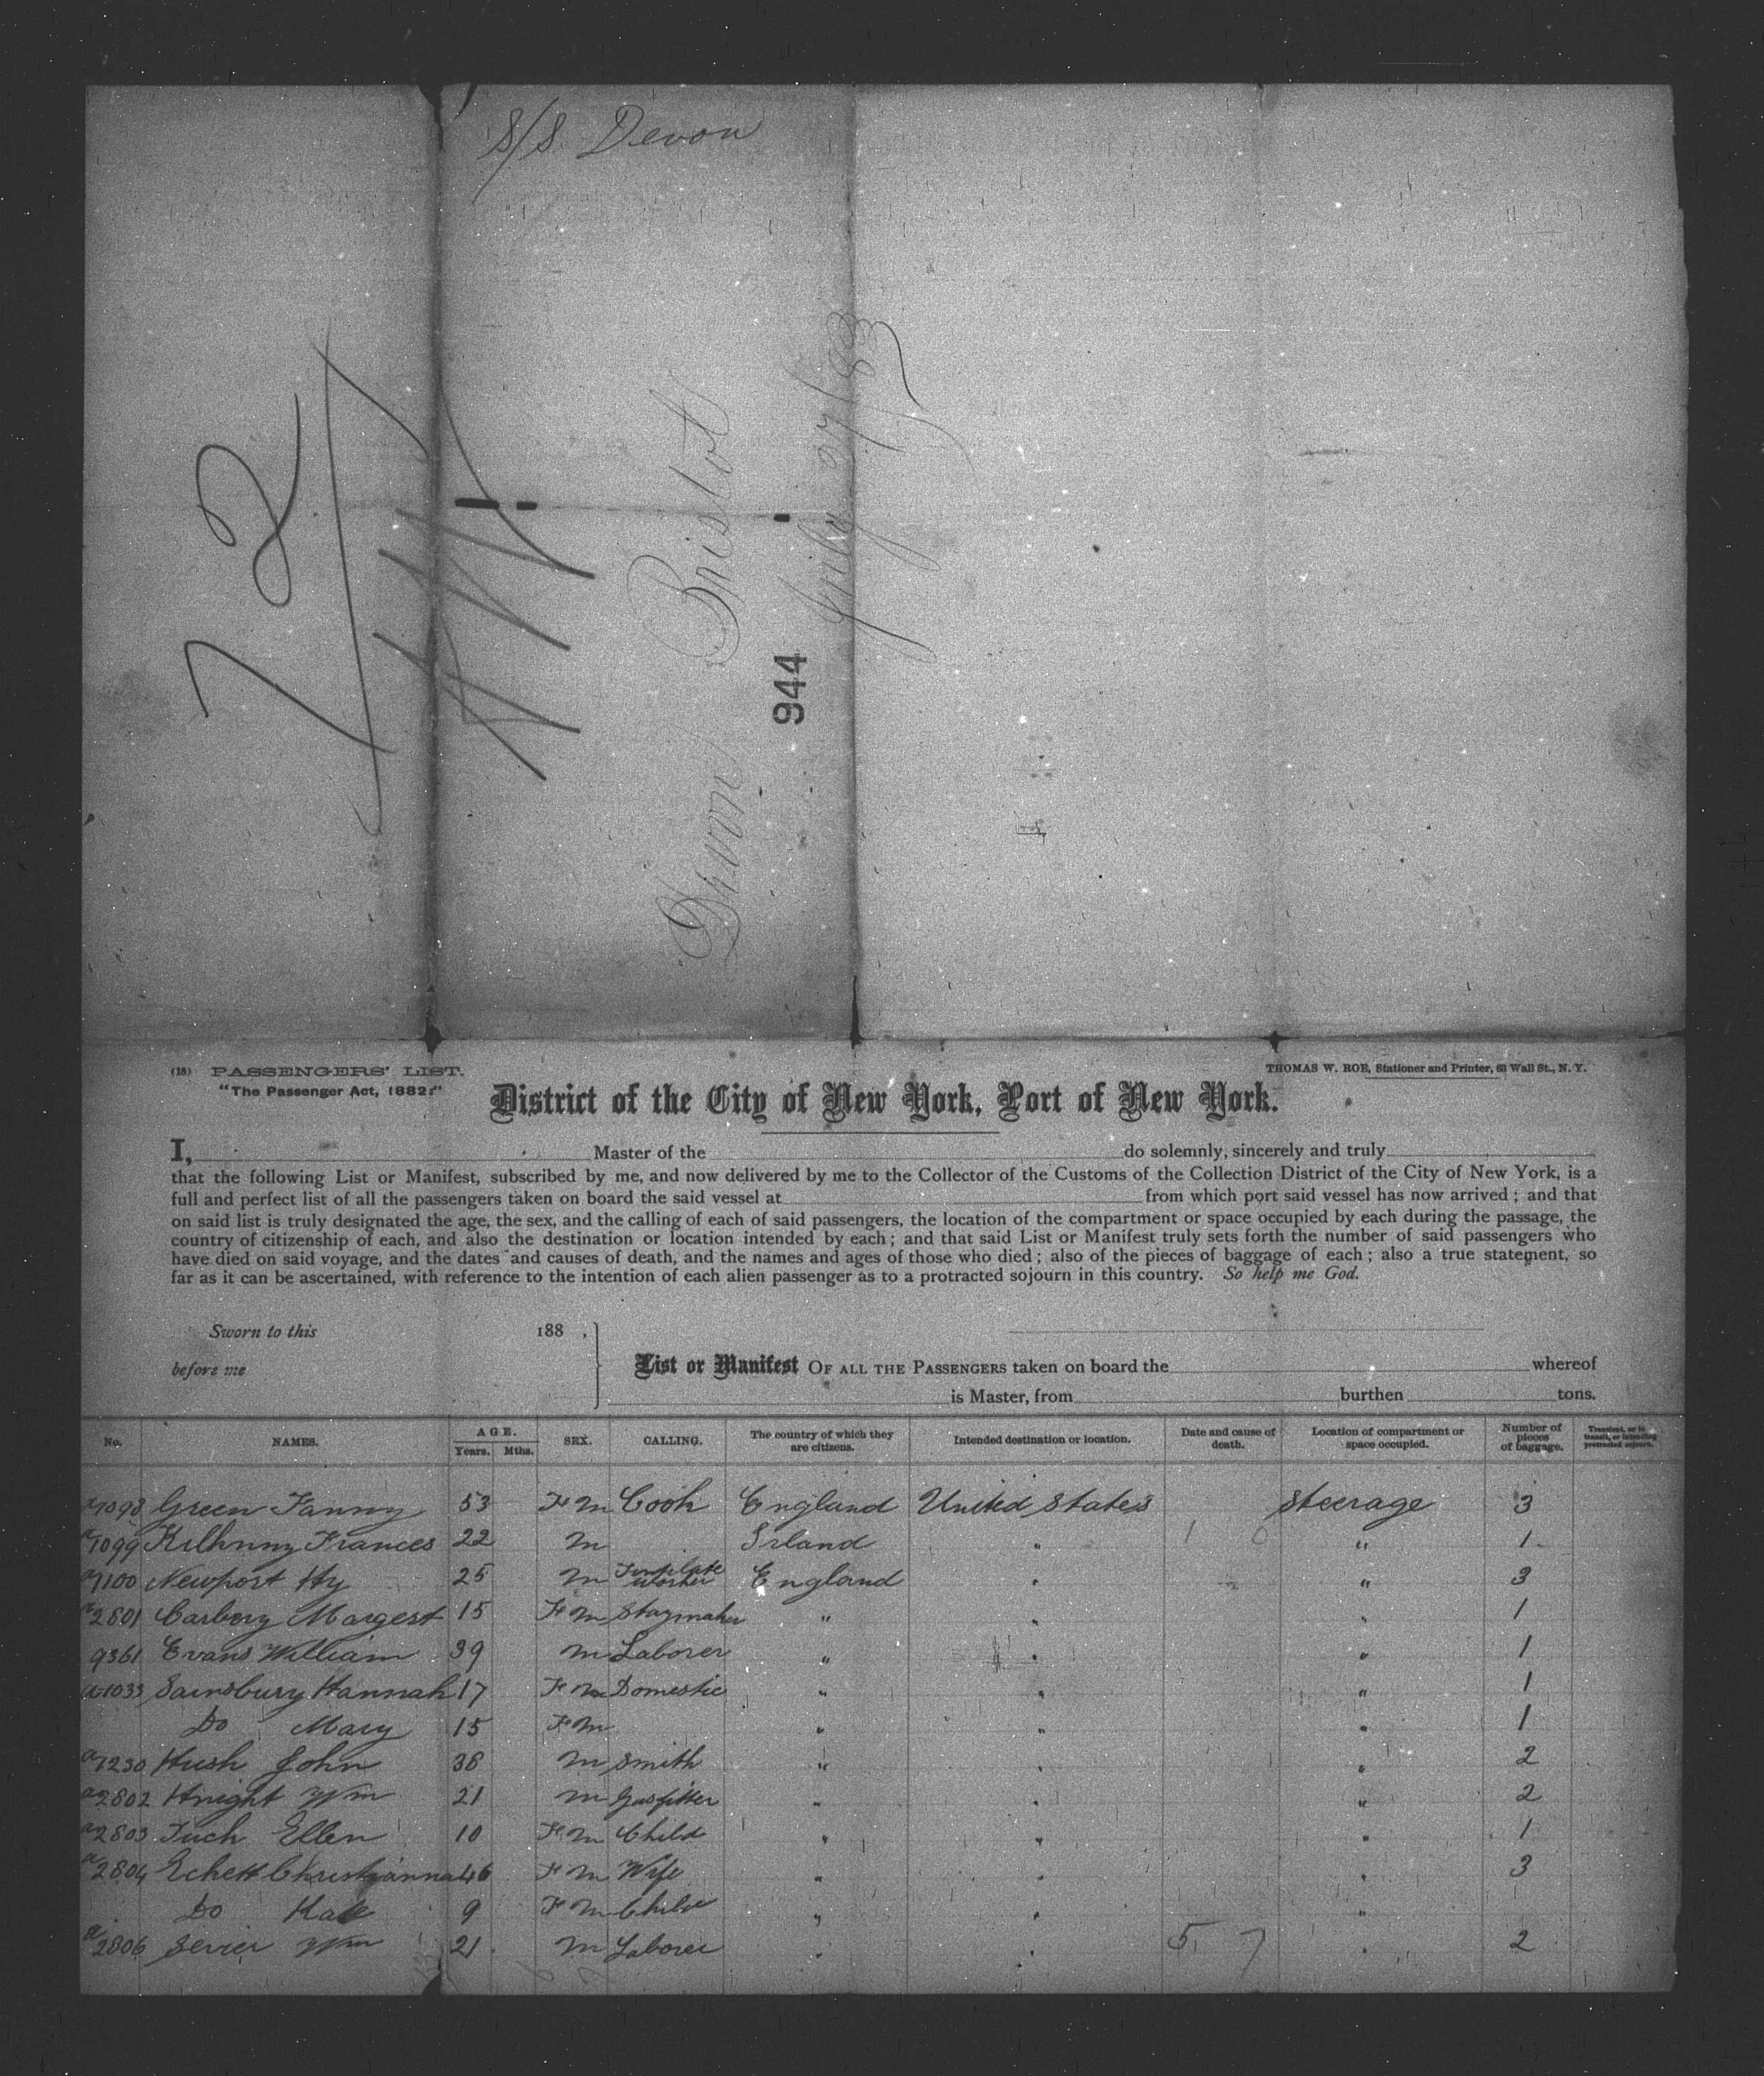 S/S. Devon
78
Devon Bristol
944
July 27/83
(18) PASSENGERS' LIST.
"The Passenger Act, 1882:"
THOMAS W. ROE, Stationer and Printer, 63 Wall St., N. Y.
District of the City of New York, Port of New York.
I, Master of the do solemnly, sincerely and truly
that the following List or Manifest, subscribed by me, and now delivered by me to the Collector of the Customs of the Collection District of the City of New York, is a
full and perfect list of all the passengers taken on board the said vessel at from which port said vessel has now arrived; and that
on said list is truly designated the age, the sex, and the calling of each of said passengers, the location of the compartment or space occupied by each during the passage, the
country of citizenship of each, and also the destination or location intended by each; and that said List or Manifest truly sets forth the number of said passengers who
have died on said voyage, and the dates and causes of death, and the names and ages of those who died; also of the pieces of baggage of each; also a true statement, so
far as it can be ascertained, with reference to the intention of each alien passenger as to a protracted sojourn in this country. So help me God.
Sworn to this 188 ,
before me
List or Manifest OF ALL THE PASSENGERS taken on board the whereof
is Master, from burthen tons.
No. NAMES. AGE. Years. Mths. SEX. CALLING. The country of which they are citizens. Intended destination or location. Date and cause of death. Location of compartment or space occupied. Number of pieces of baggage. Transient, or in transit, or intending protracted sojourn.
a7098 Green Fanny 53 F m Cook England United States Steerage 3
a7099 Kilhnny Frances 22 m Irland " " 1
a7100 Newport Hy 25 m Tinplate worker England " " 3
a2801 Carbery Margest 15 F m Staymaker " " " 1
9361 Evans William 39 m Laborer " " " 1
a1033 Sainsbury Hannah 17 F m Domestic " " " 1
Do Mary 15 F m " " " 1
a7230 Hush John 38 m Smith " " " 2
a2802 Knight Wm 21 m Gasfitter " " " 2
a2803 Tuch Ellen 10 F m Child " " " 1
a2804 Echett Christianna 46 F m Wife " " " 3
Do Kate 9 F m Child " " "
a2806 Sevier Wm 21 m Laborer " " 5 7 " 2